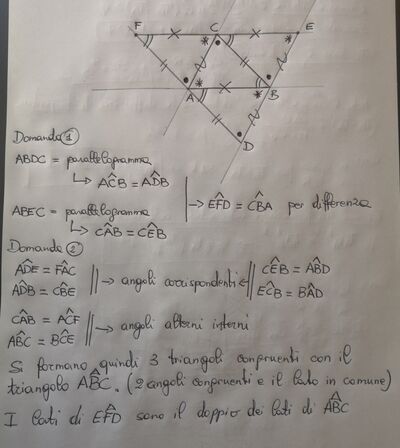 F C E
A B
D
Domanda 1
ABDC = parallelogramma
↳ AĈB = AD̂B
ABEC = parallelogramma
↳ CÂB = CÊB
→ EF̂D = CB̂A per differenza
Domanda 2
AD̂E = FÂC
AD̂B = CB̂E
→ angoli corrispondenti ←
CÊB = AB̂D
EĈB = BÂD
CÂB = AĈF
AB̂C = BĈE
→ angoli alterni interni
Si formano quindi 3 triangoli congruenti con il
triangolo AB̂C. (2 angoli congruenti e il lato in comune)
I lati di EF̂D sono il doppio dei lati di AB̂C